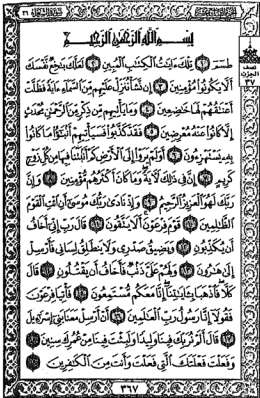 بِسْمِ اللَّهِ الرَّحْمَٰنِ الرَّحِيمِ
طسٓمٓ ۝١ تِلْكَ ءَايَٰتُ ٱلْكِتَٰبِ ٱلْمُبِينِ ۝٢ لَعَلَّكَ بَٰخِعٌ نَّفْسَكَ
أَلَّا يَكُونُوا۟ مُؤْمِنِينَ ۝٣ إِن نَّشَأْ نُنَزِّلْ عَلَيْهِم مِّنَ ٱلسَّمَآءِ ءَايَةً فَظَلَّتْ
أَعْنَٰقُهُمْ لَهَا خَٰضِعِينَ ۝٤ وَمَا يَأْتِيهِم مِّن ذِكْرٍ مِّنَ ٱلرَّحْمَٰنِ مُحْدَثٍ
إِلَّا كَانُوا۟ عَنْهُ مُعْرِضِينَ ۝٥ فَقَدْ كَذَّبُوا۟ فَسَيَأْتِيهِمْ أَنۢبَٰٓؤُا۟ مَا كَانُوا۟
بِهِۦ يَسْتَهْزِءُونَ ۝٦ أَوَلَمْ يَرَوْا۟ إِلَى ٱلْأَرْضِ كَمْ أَنۢبَتْنَا فِيهَا مِن كُلِّ زَوْجٍ
كَرِيمٍ ۝٧ إِنَّ فِى ذَٰلِكَ لَءَايَةً وَمَا كَانَ أَكْثَرُهُم مُّؤْمِنِينَ ۝٨ وَإِنَّ
رَبَّكَ لَهُوَ ٱلْعَزِيزُ ٱلرَّحِيمُ ۝٩ وَإِذْ نَادَىٰ رَبُّكَ مُوسَىٰٓ أَنِ ٱئْتِ ٱلْقَوْمَ
ٱلظَّٰلِمِينَ ۝١٠ قَوْمَ فِرْعَوْنَ أَلَا يَتَّقُونَ ۝١١ قَالَ رَبِّ إِنِّىٓ أَخَافُ
أَن يُكَذِّبُونِ ۝١٢ وَيَضِيقُ صَدْرِى وَلَا يَنطَلِقُ لِسَانِى فَأَرْسِلْ
إِلَىٰ هَٰرُونَ ۝١٣ وَلَهُمْ عَلَىَّ ذَنۢبٌ فَأَخَافُ أَن يَقْتُلُونِ ۝١٤ قَالَ
كَلَّا فَٱذْهَبَا بِـَٔايَٰتِنَآ إِنَّا مَعَكُم مُّسْتَمِعُونَ ۝١٥ فَأْتِيَا فِرْعَوْنَ
فَقُولَآ إِنَّا رَسُولُ رَبِّ ٱلْعَٰلَمِينَ ۝١٦ أَنْ أَرْسِلْ مَعَنَا بَنِىٓ إِسْرَٰٓءِيلَ
۝١٧ قَالَ أَلَمْ نُرَبِّكَ فِينَا وَلِيدًا وَلَبِثْتَ فِينَا مِنْ عُمُرِكَ سِنِينَ ۝١٨
وَفَعَلْتَ فَعْلَتَكَ ٱلَّتِى فَعَلْتَ وَأَنتَ مِنَ ٱلْكَٰفِرِينَ ۝١٩
نصف
الحزب
٣٧
٣٦٧